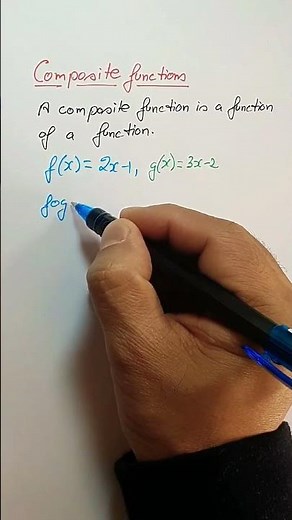 Composite functions
A composite function is a function
of a function.
f(x) = 2x-1, g(x)=3x-2
fog